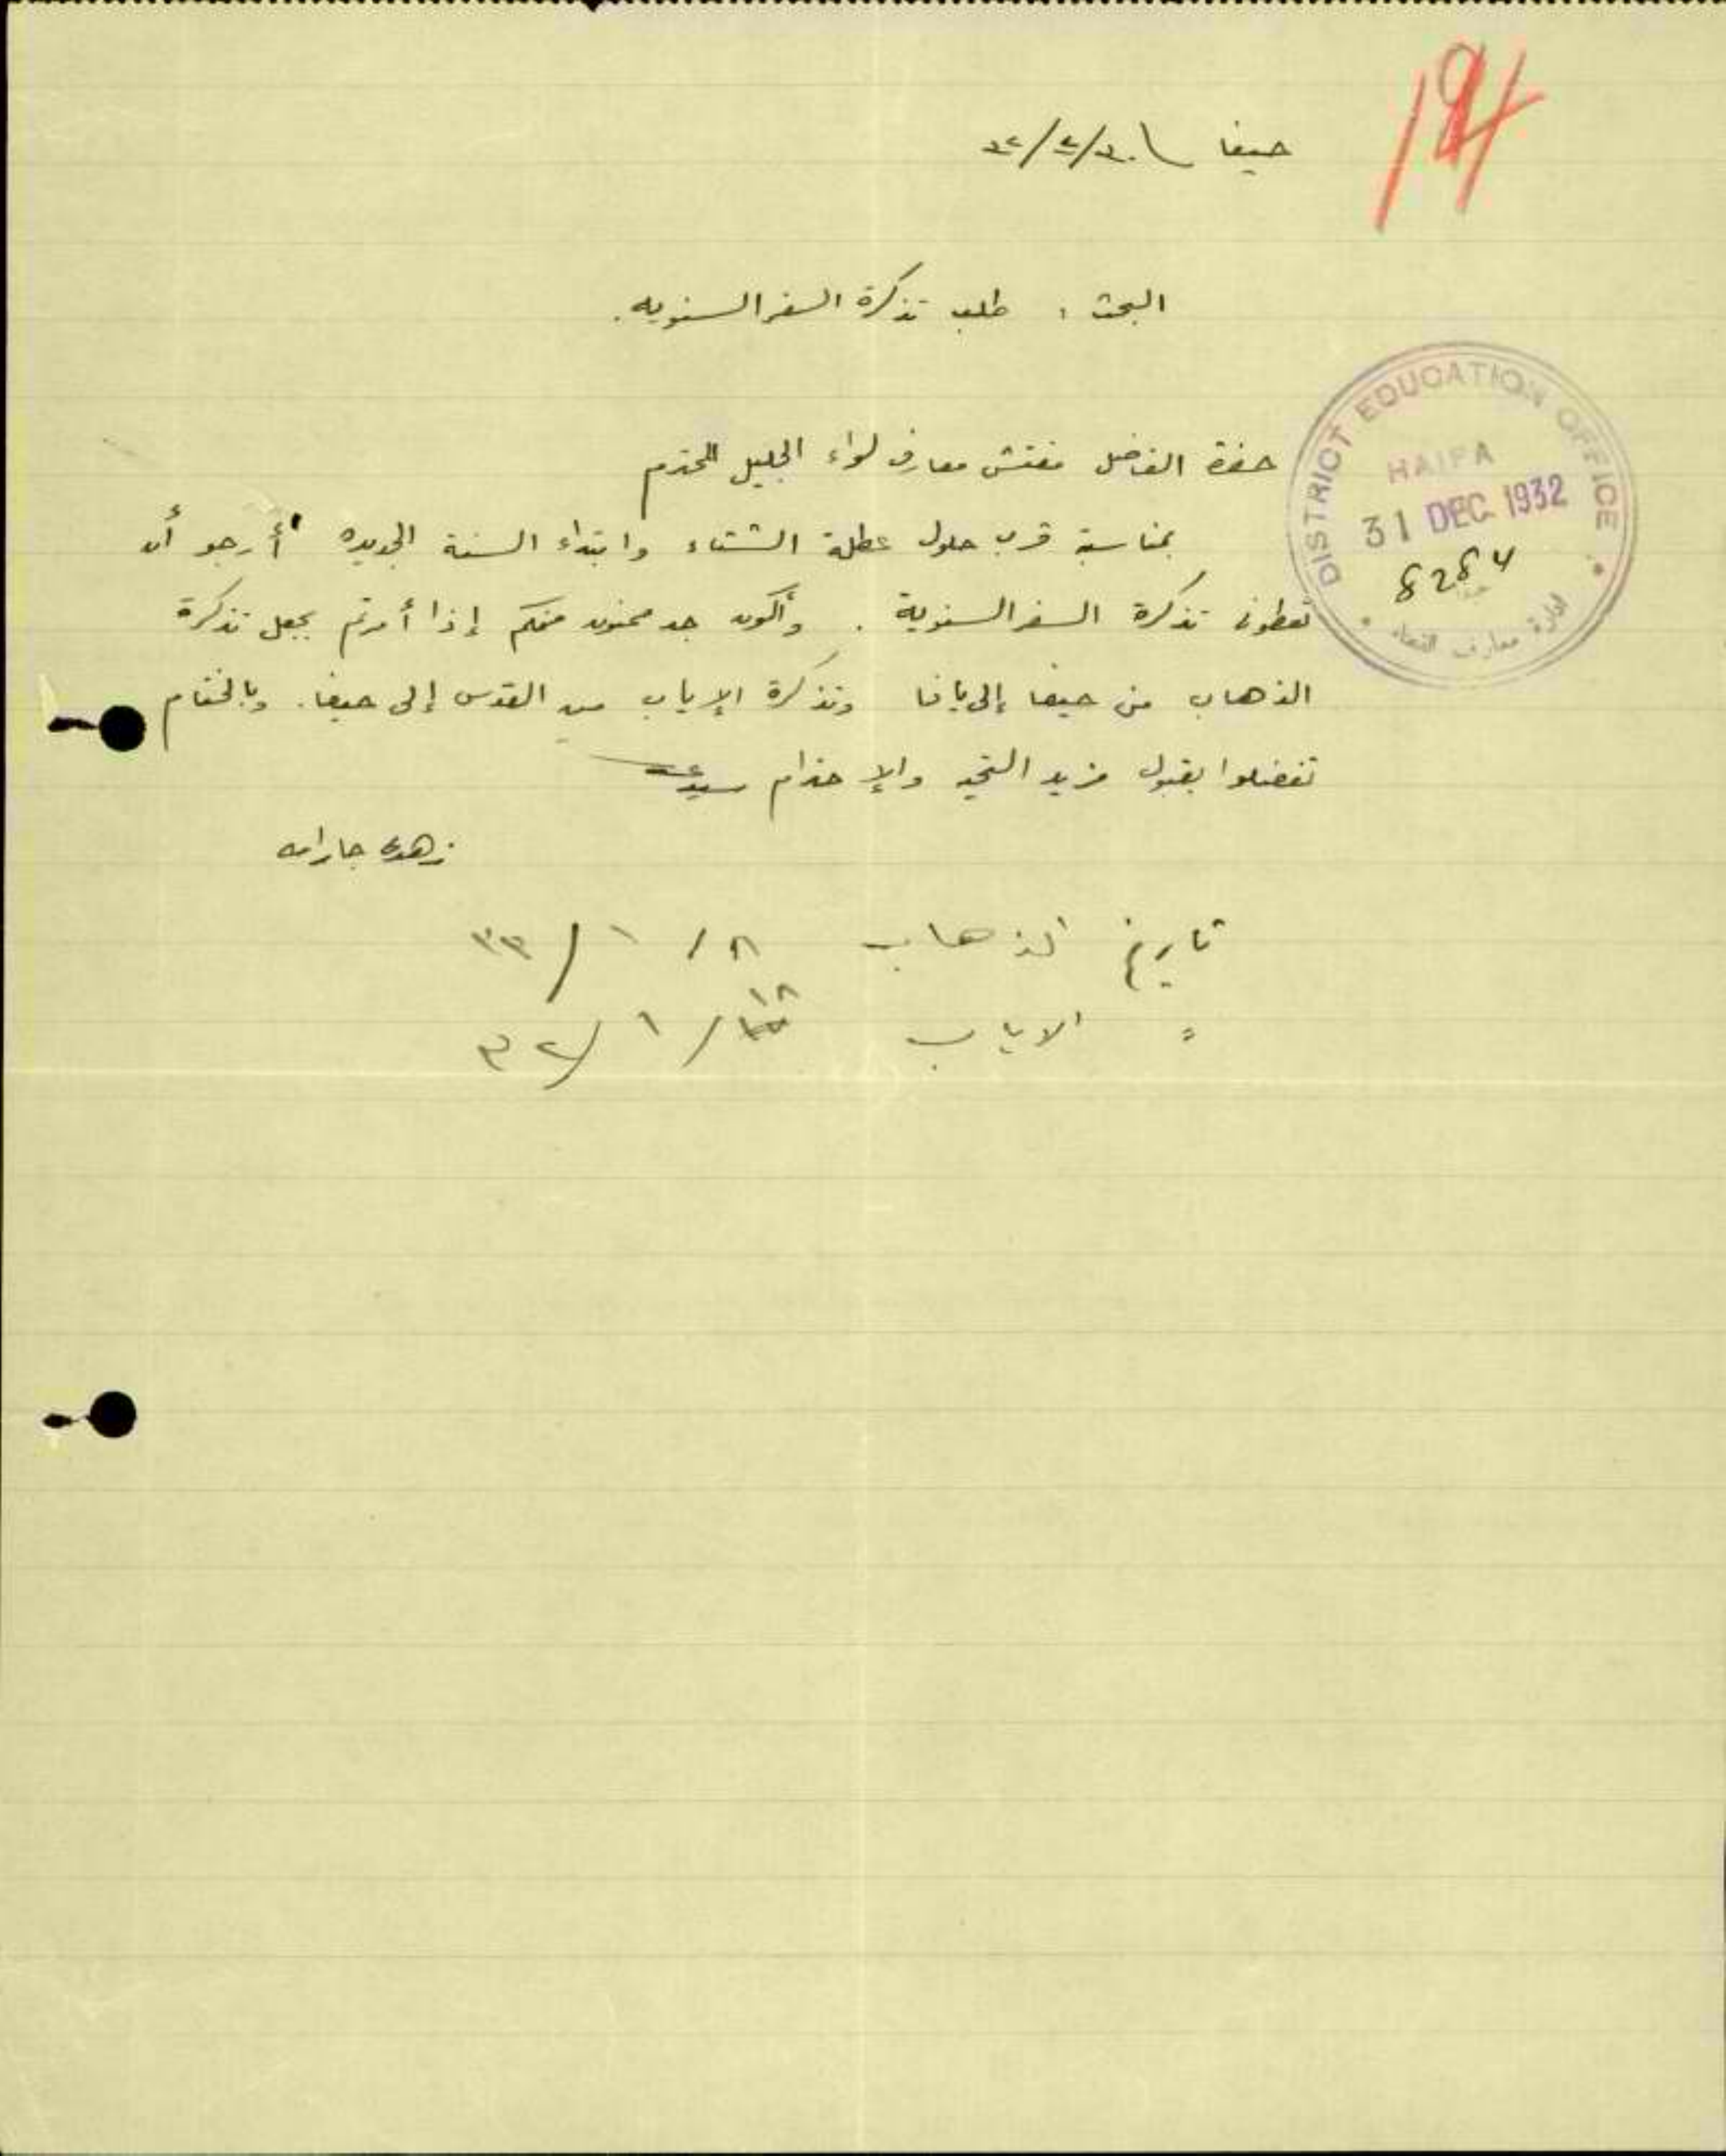 194
حيفا في ٣٠/١٢/٣٢
البحث : طلب تذكرة السفر السنويه.
DISTRICT EDUCATION OFFICE
HAIFA
31 DEC 1932
إدارة معارف القضاء
حضرة الفاضل مفتش معارف لواء الجليل المحترم
بمناسبة قرب حلول عطلة الشتاء وابتداء السنة الجديده أرجو أن
تعطوني تذكرة السفر السنوية . وأكون جد ممنون منكم إذا أمرتم بجعل تذكرة
الذهاب من حيفا إلى يافا وتذكرة الإياب من القدس إلى حيفا. وبالختام
تفضلوا بقبول مزيد التحية والإحترام سيدي
زهدي جارالله
تاريخ الذهاب ٨ / ١ / ٣٣
= الاياب ١٨ / ١ / ٣٢